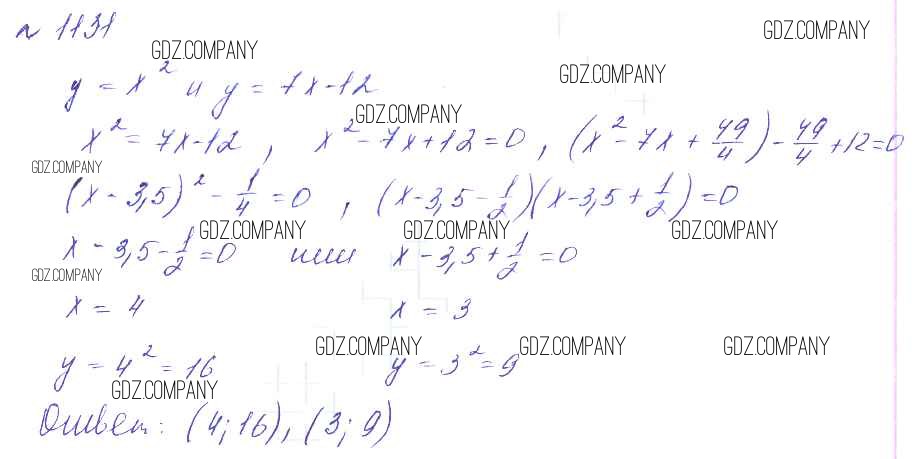 № 1131
GDZ.COMPANY GDZ.COMPANY
GDZ.COMPANY
y = x² и y = 7x-12
GDZ.COMPANY
x² = 7x-12, x² - 7x + 12 = 0, (x² - 7x + 49/4) - 49/4 + 12 = 0
GDZ.COMPANY
(x - 3,5)² - 1/4 = 0, (x - 3,5 - 1/2)(x - 3,5 + 1/2) = 0
GDZ.COMPANY GDZ.COMPANY GDZ.COMPANY
x - 3,5 - 1/2 = 0 или x - 3,5 + 1/2 = 0
GDZ.COMPANY
x = 4 x = 3
GDZ.COMPANY GDZ.COMPANY GDZ.COMPANY
y = 4² = 16 y = 3² = 9
GDZ.COMPANY
Ответ: (4; 16), (3; 9)